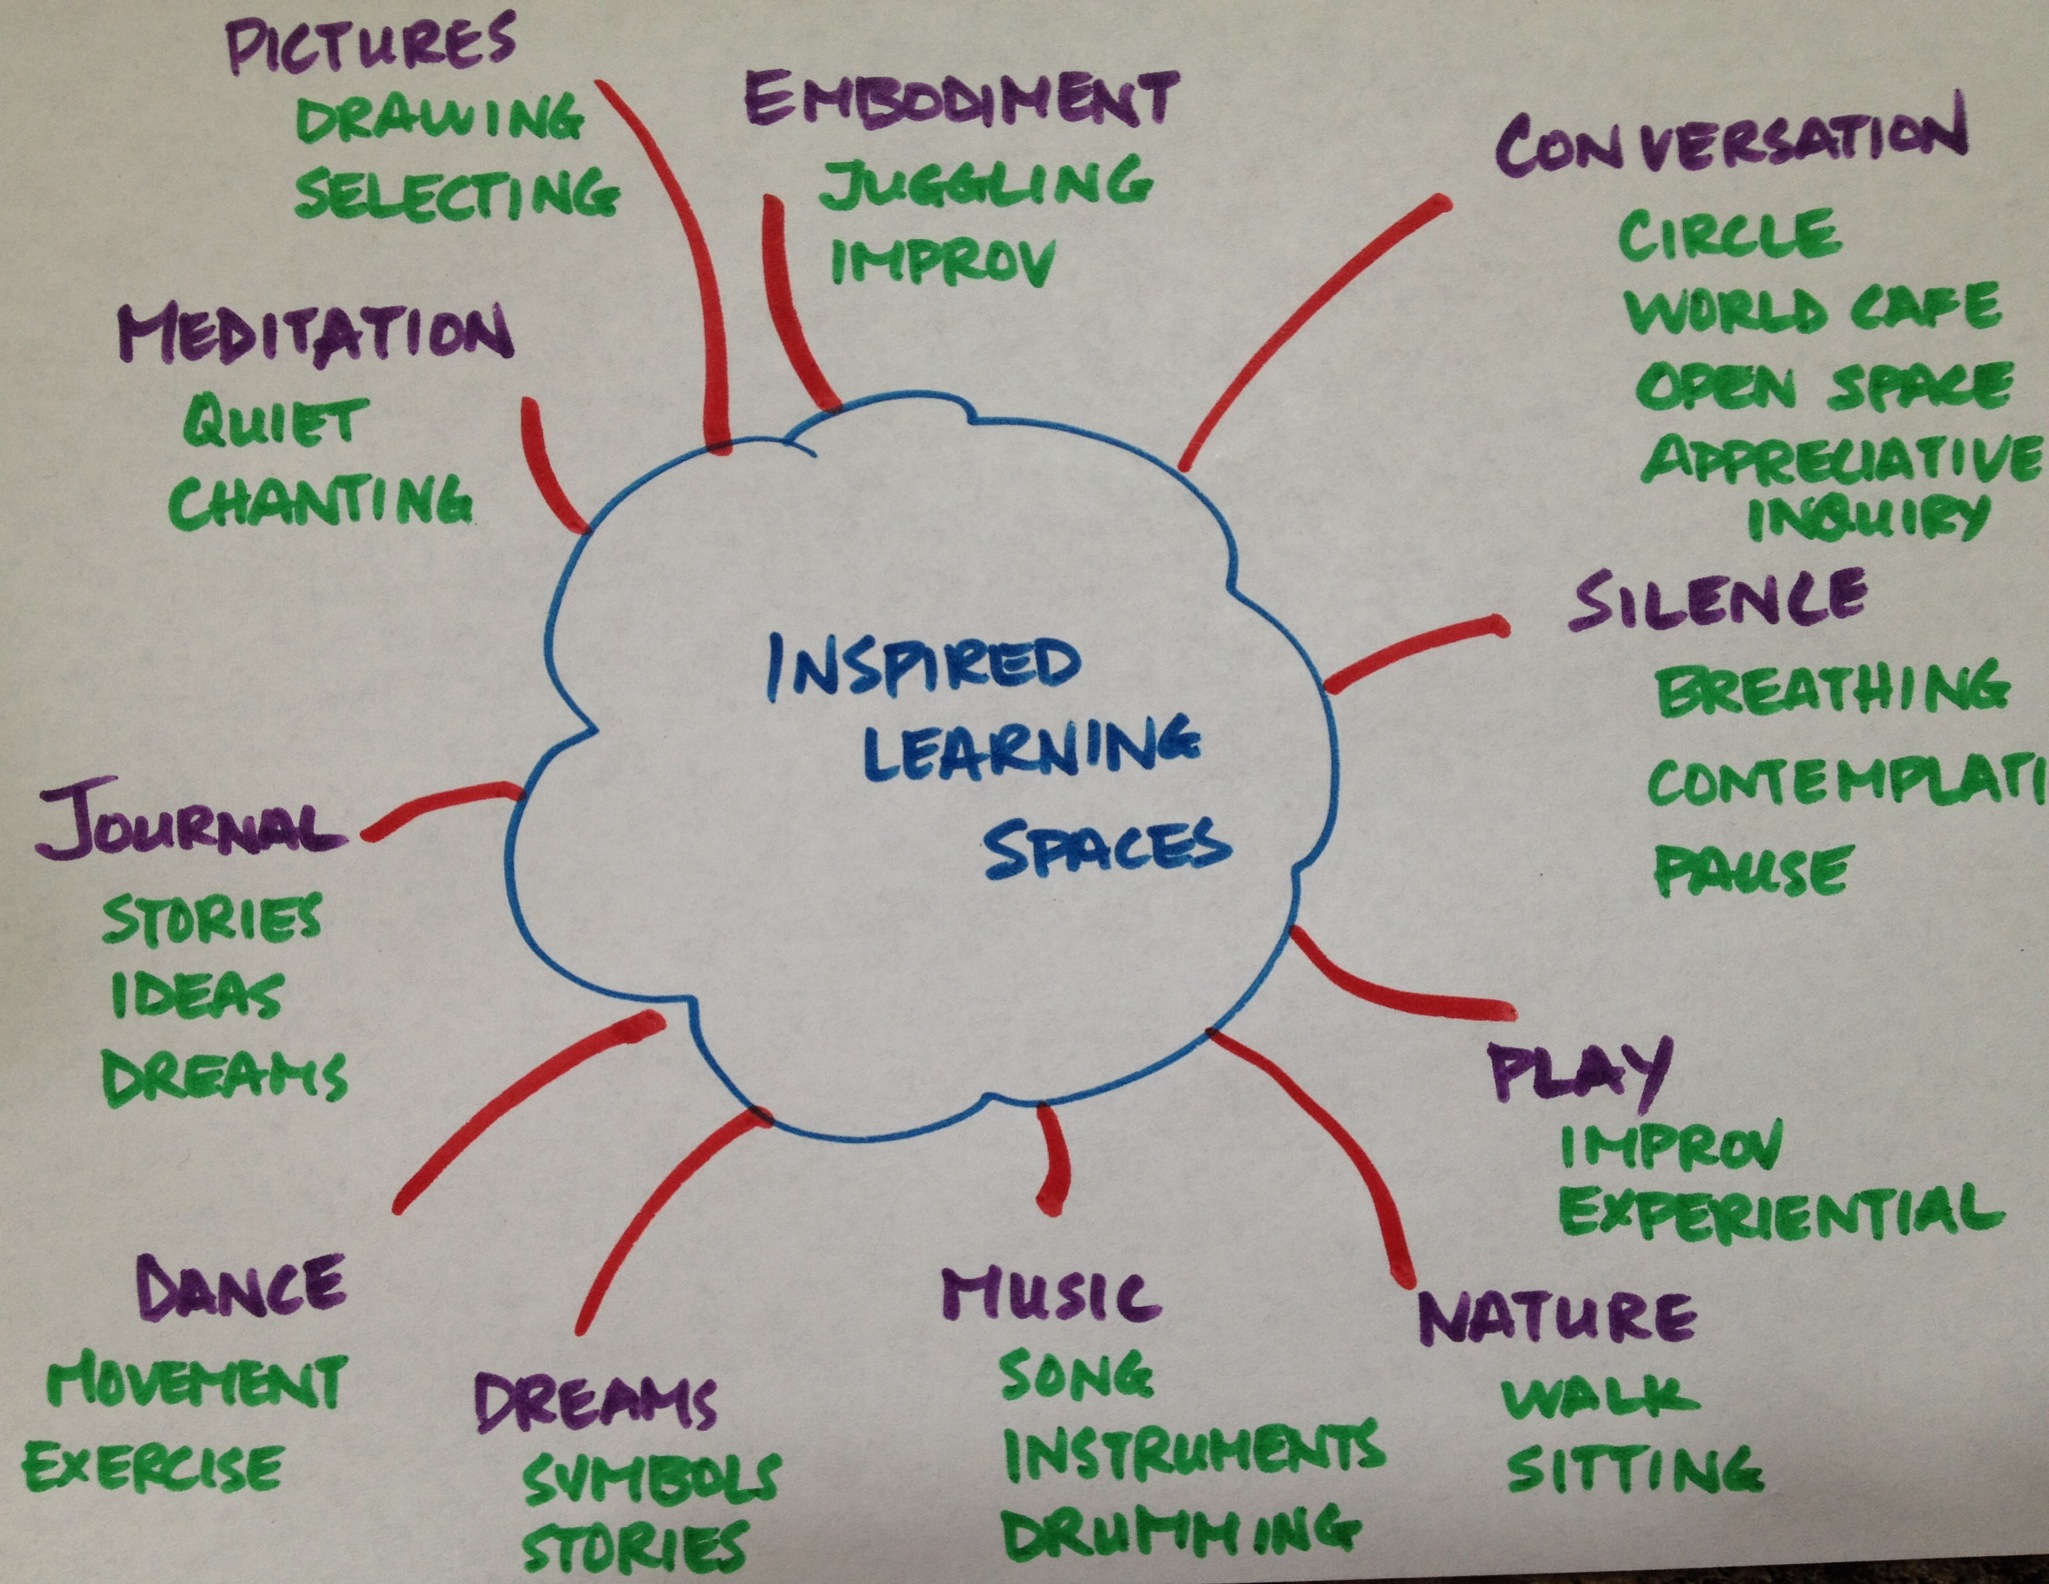 PICTURES
DRAWING
SELECTING
EMBODIMENT
JUGGLING
IMPROV
CONVERSATION
CIRCLE
WORLD CAFE
OPEN SPACE
APPRECIATIVE
INQUIRY
MEDITATION
QUIET
CHANTING
SILENCE
BREATHING
CONTEMPLATI
PAUSE
INSPIRED
LEARNING
SPACES
JOURNAL
STORIES
IDEAS
DREAMS
PLAY
IMPROV
EXPERIENTIAL
DANCE
MOVEMENT
EXERCISE
DREAMS
SYMBOLS
STORIES
MUSIC
SONG
INSTRUMENTS
DRUMMING
NATURE
WALK
SITTING